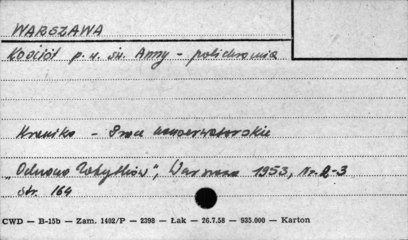 WARSZAWA
Kościół p.w. św. Anny - polichromia
Kronika - Prace konserwatorskie
"Ochrona Zabytków", Warszawa 1953, Nr. 2-3
str. 164
CWD — B-15b — Zam. 1402/P — 2398 — Łak — 26.7.58 — 935.000 — Karton